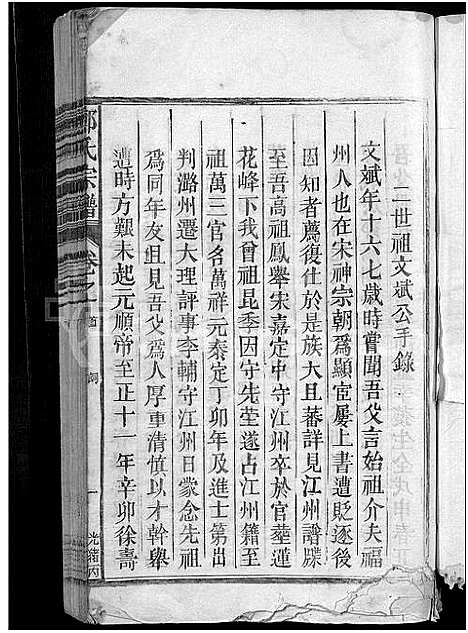 二世祖文斌公手錄
文斌年十六七歲時嘗聞吾父言始祖介夫福
州人也在宋神宗朝爲顯宦屢上書遭貶逐後
因知者薦復仕於是族大且蕃詳見江州譜牒
至吾高祖鳳舉宋嘉定中守江州卒於官塟蓮
花峰下我曾祖昆季因守先塋遂占江州籍至
祖萬三官名萬祥元泰定丁卯年及進士第出
判潞州遷大理評事李輔守江州日蒙念先祖
爲同年友徂見吾父爲人厚重清慎以才幹舉
遭時方艱未起元順帝至正十一年辛卯徐壽
鄭氏宗譜
卷之
首
一
光緒丙